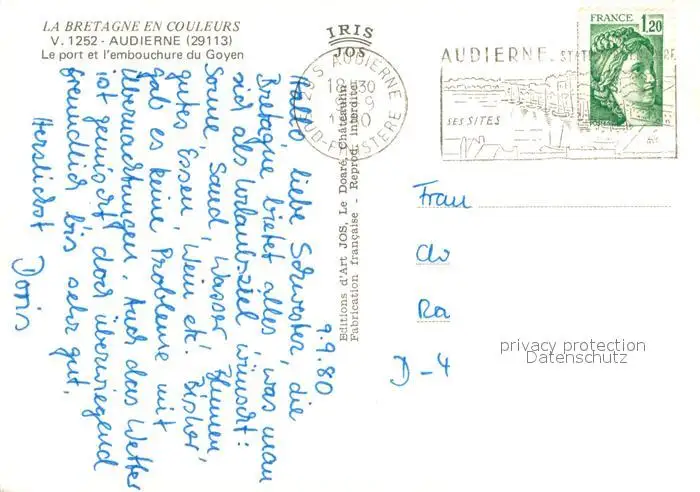 LA BRETAGNE EN COULEURS
V. 1252 - AUDIERNE (29113)
Le port et l'embouchure du Goyen
IRIS
JOS
29 S AUDIERNE
SUD-FINISTERE
AUDIERNE
SES SITES
FRANCE
1,20
Editions d'Art JOS, Le Doaré, Châteaulin
Fabrication française - Reprod. interdite
9.9.80
Hallo liebe Schwester, die
Bretagne bietet alles was man
sich als Urlaubsziel wünscht:
Sonne, Sand, Wasser, Blumen,
gutes Essen, Wein etc. Bisher
gab es keine Probleme mit
Übernachtungen. Auch das Wetter
ist gemischt doch überwiegend
freundlich bis sehr gut.
Herzlichst
Doris
Frau
Ra
D-4
privacy protection
Datenschutz